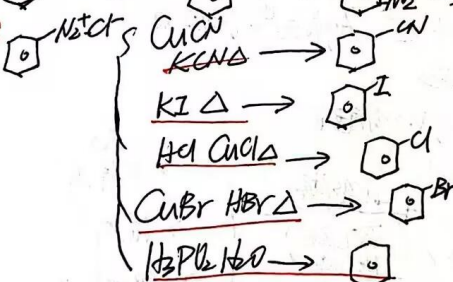 N₂⁺Cl⁻
CuCN
KCN△ → CN
KI △ → I
HCl CuCl△ → Cl
CuBr HBr△ → Br
H₃PO₂ H₂O →